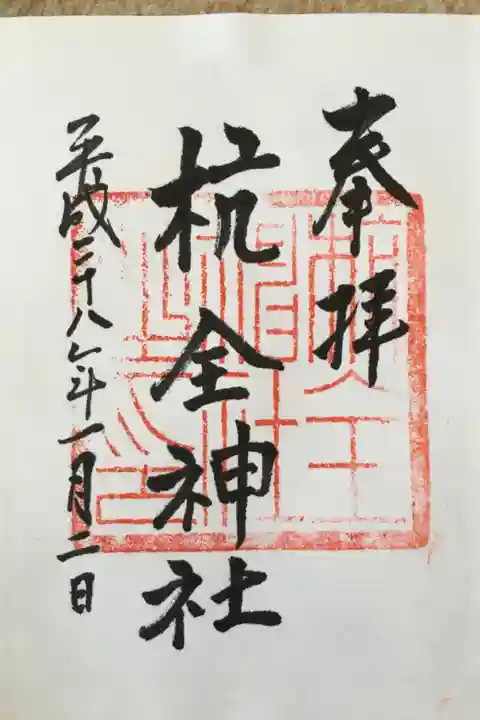 奉拝
杭全神社
平成二十八年一月二日